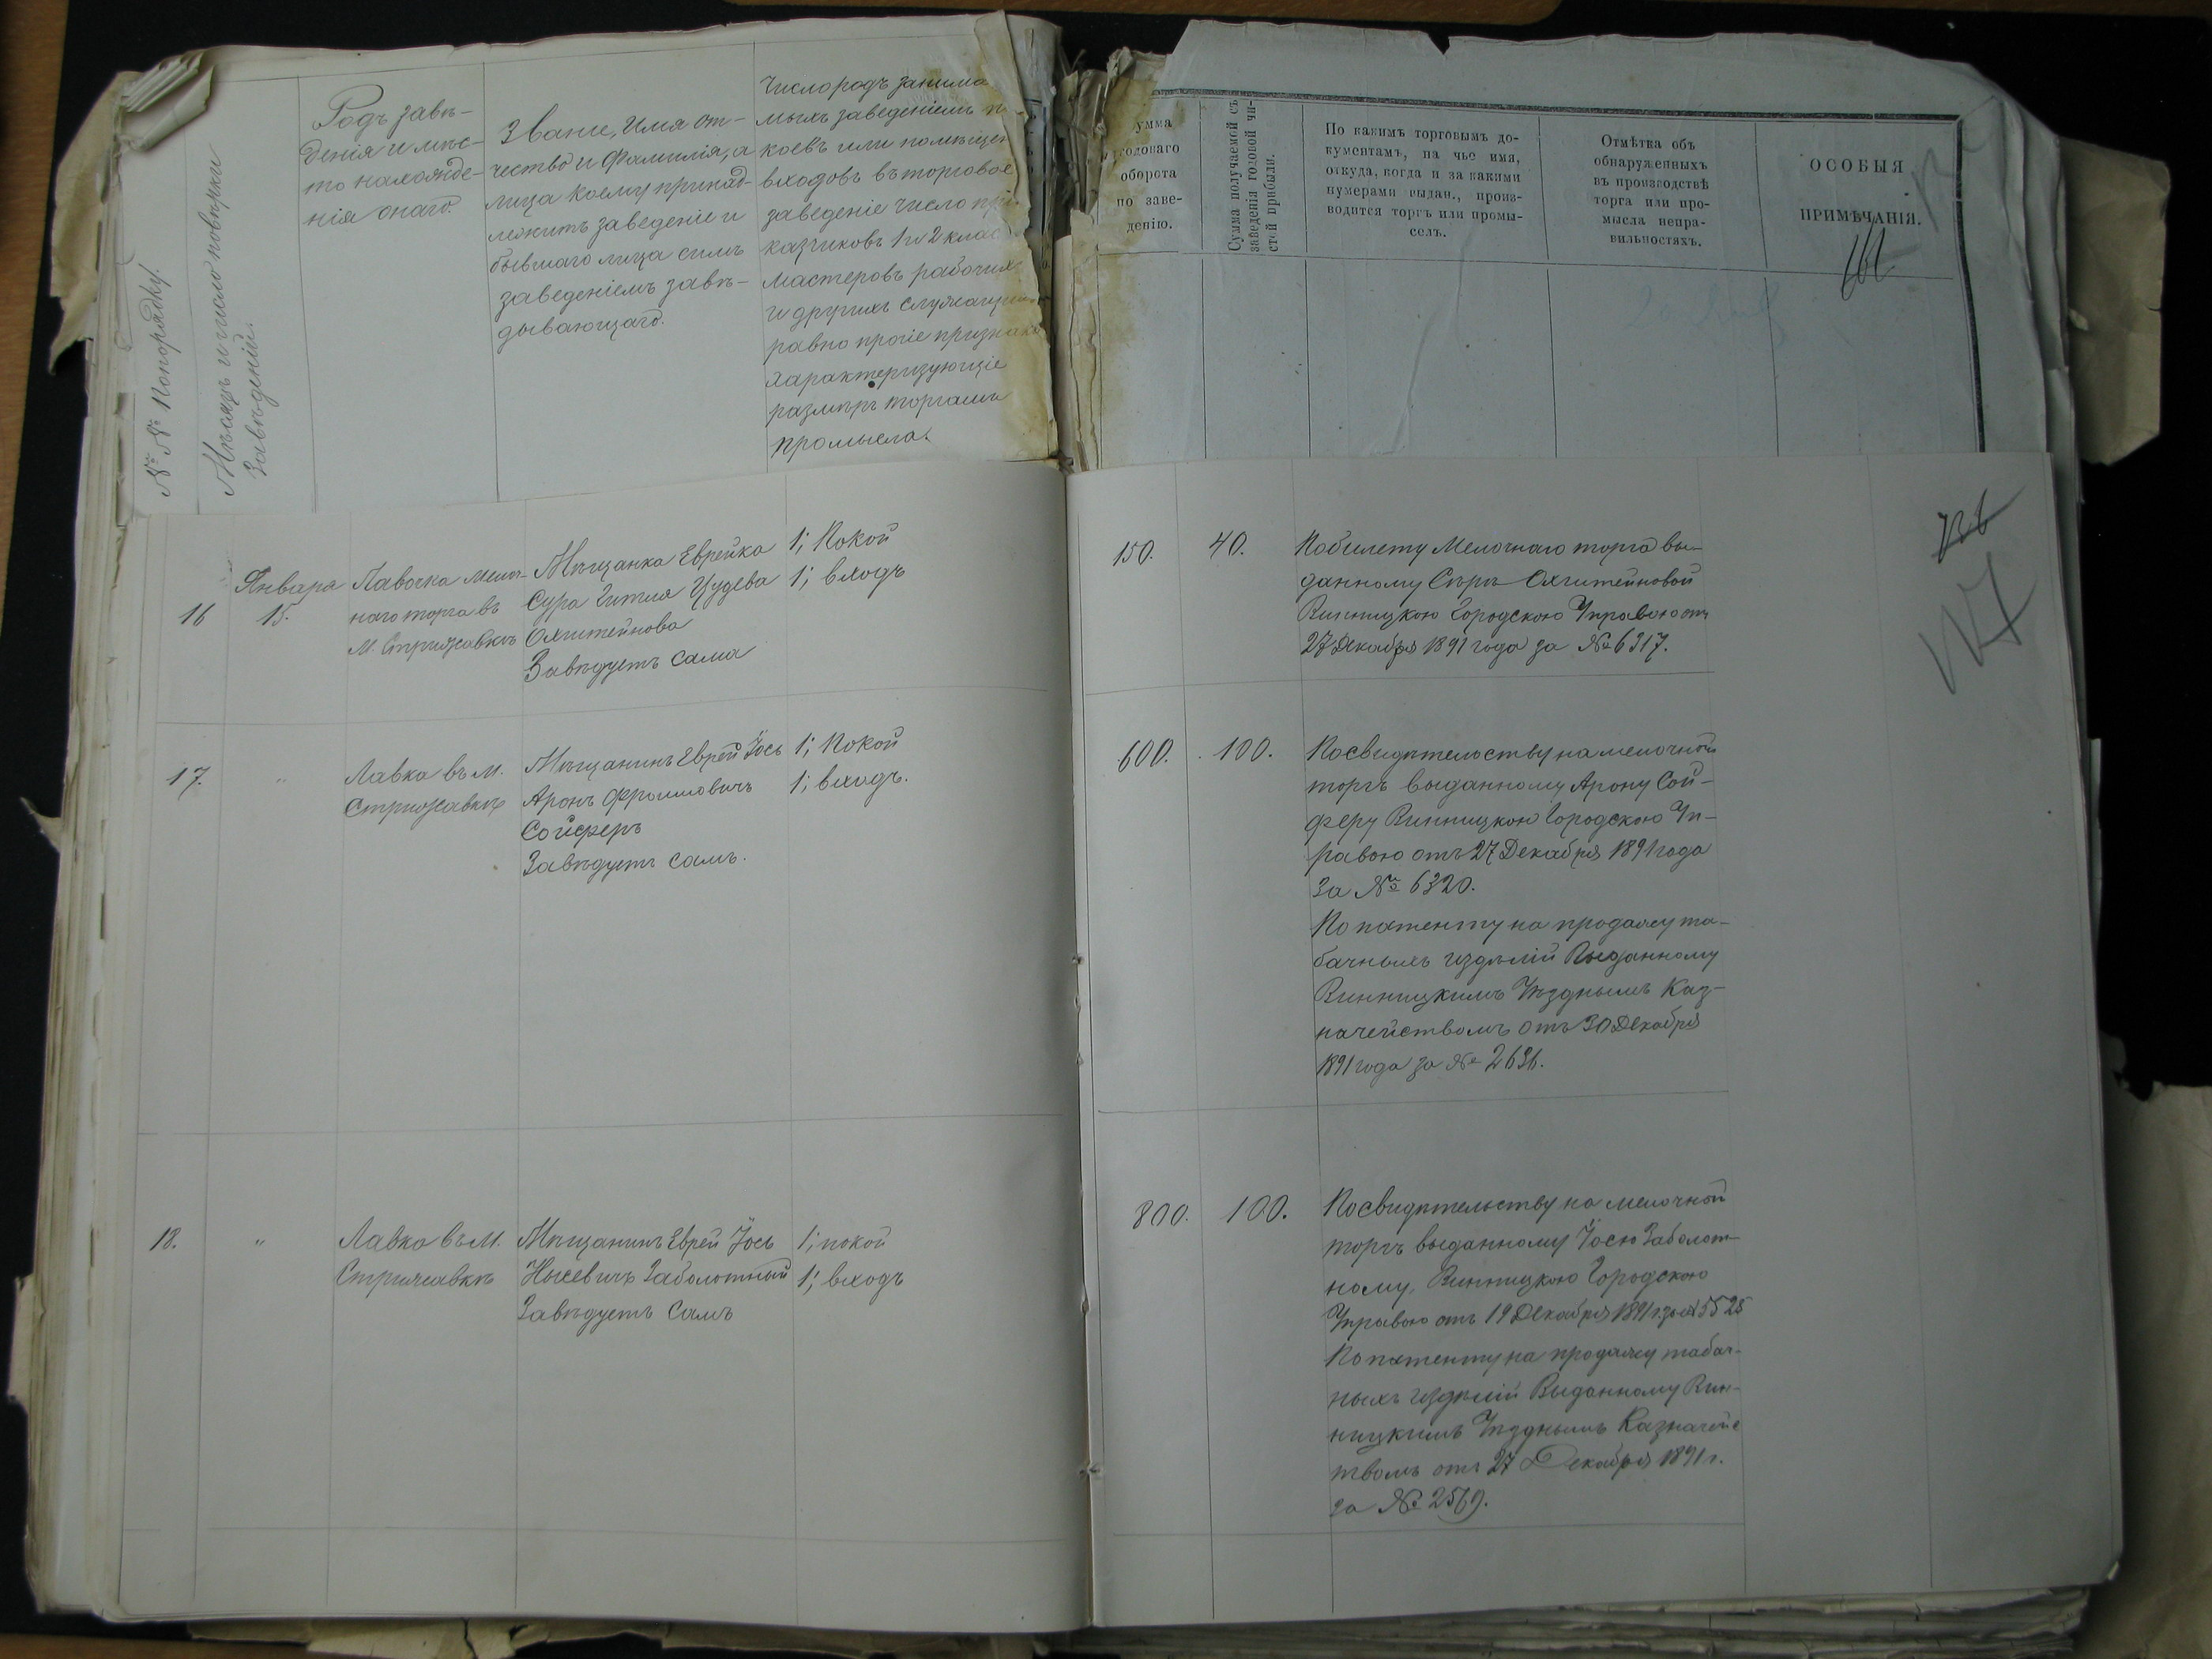 №№ по порядку.
Мѣсяцъ и число повѣрки
Заведенія.
Родъ заве-
денія и мѣс-
то нахожде-
нія онаго.
Званіе, Имя от-
чество и Фамилія, а
лица коему принад-
лежитъ заведеніе и
бывшаго лица симъ
заведеніемъ завѣ-
дывающаго.
Число родъ занима
мыхъ заведеніемъ п
коевъ или помѣщен
входовъ въ торговое
заведеніе число при
казчиковъ 1 и 2 клас
мастеровъ рабочихъ
и другихъ служащихъ
равно прочіе признаки
характеризующіе
размѣръ торга или
промысла.
умма
годоваго
оборота
по заве-
денію.
Сумма получаемой съ
заведенія годовой чи-
стой прибыли.
По какимъ торговымъ до-
кументамъ, на чье имя,
откуда, когда и за какими
нумерами выдан., произ-
водится торгъ или промы-
селъ.
Отмѣтка объ
обнаруженныхъ
въ производствѣ
торга или про-
мысла непра-
вильностяхъ.
ОСОБЫЯ
ПРИМѢЧАНІЯ.
16
Января
15.
Лавочка мелоч-
наго торга въ
М. Стрижавкѣ
Мѣщанка Еврейка
Сура Гитля Цудева
Охштейнова
Завѣдуетъ сама
1; Покой
1; входъ
150.
40.
По билету Мелочнаго торга вы-
данному Сурѣ Охштейновой
Винницкою Городскою Управою отъ
27 Декабря 1891 года за № 6317.
17.
"
Лавка въ М.
Стрижавкѣ
Мѣщанинъ Еврей Йось
Аронъ Фроимовичъ
Сойферъ
Завѣдуетъ самъ.
1; Покой
1; входъ.
600.
100.
По свидѣтельству на мелочной
торгъ выданному Арону Сой-
феру Винницкою Городскою Уп-
равою отъ 27 Декабря 1891 года
за № 6320.
По патенту на продажу та-
бачныхъ издѣлій Выданному
Винницкимъ Уѣзднымъ Каз-
начействомъ отъ 30 Декабря
1891 года за № 2636.
18.
"
Лавка въ М.
Стрижавкѣ
Мѣщанинъ Еврей Йось
Заболотный
Завѣдуетъ Самъ
1; покой
1; входъ
800.
100.
По свидѣтельству на мелочной
торгъ выданному Йосю Заболот-
ному, Винницкою Городскою
Управою отъ 19 Декабря 1891 г. за № 5525
По патенту на продажу табач-
ныхъ издѣлій Выданному Вин-
ницкимъ Уѣзднымъ Казначейс
твомъ отъ 27 Декабря 1891 г.
за № 2569.